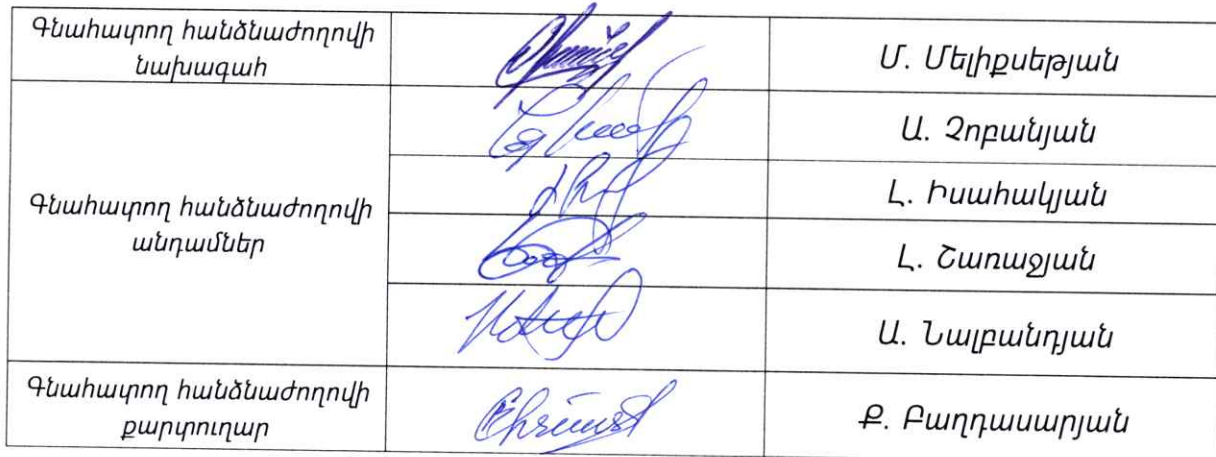 Գնահատող հանձնաժողովի
նախագահ
Մ. Մելիքսեթյան
Գնահատող հանձնաժողովի
անդամներ
Ա. Չոբանյան
Լ. Իսահակյան
Լ. Շառաջյան
Ա. Նալբանդյան
Գնահատող հանձնաժողովի
քարտուղար
Ք. Բաղդասարյան